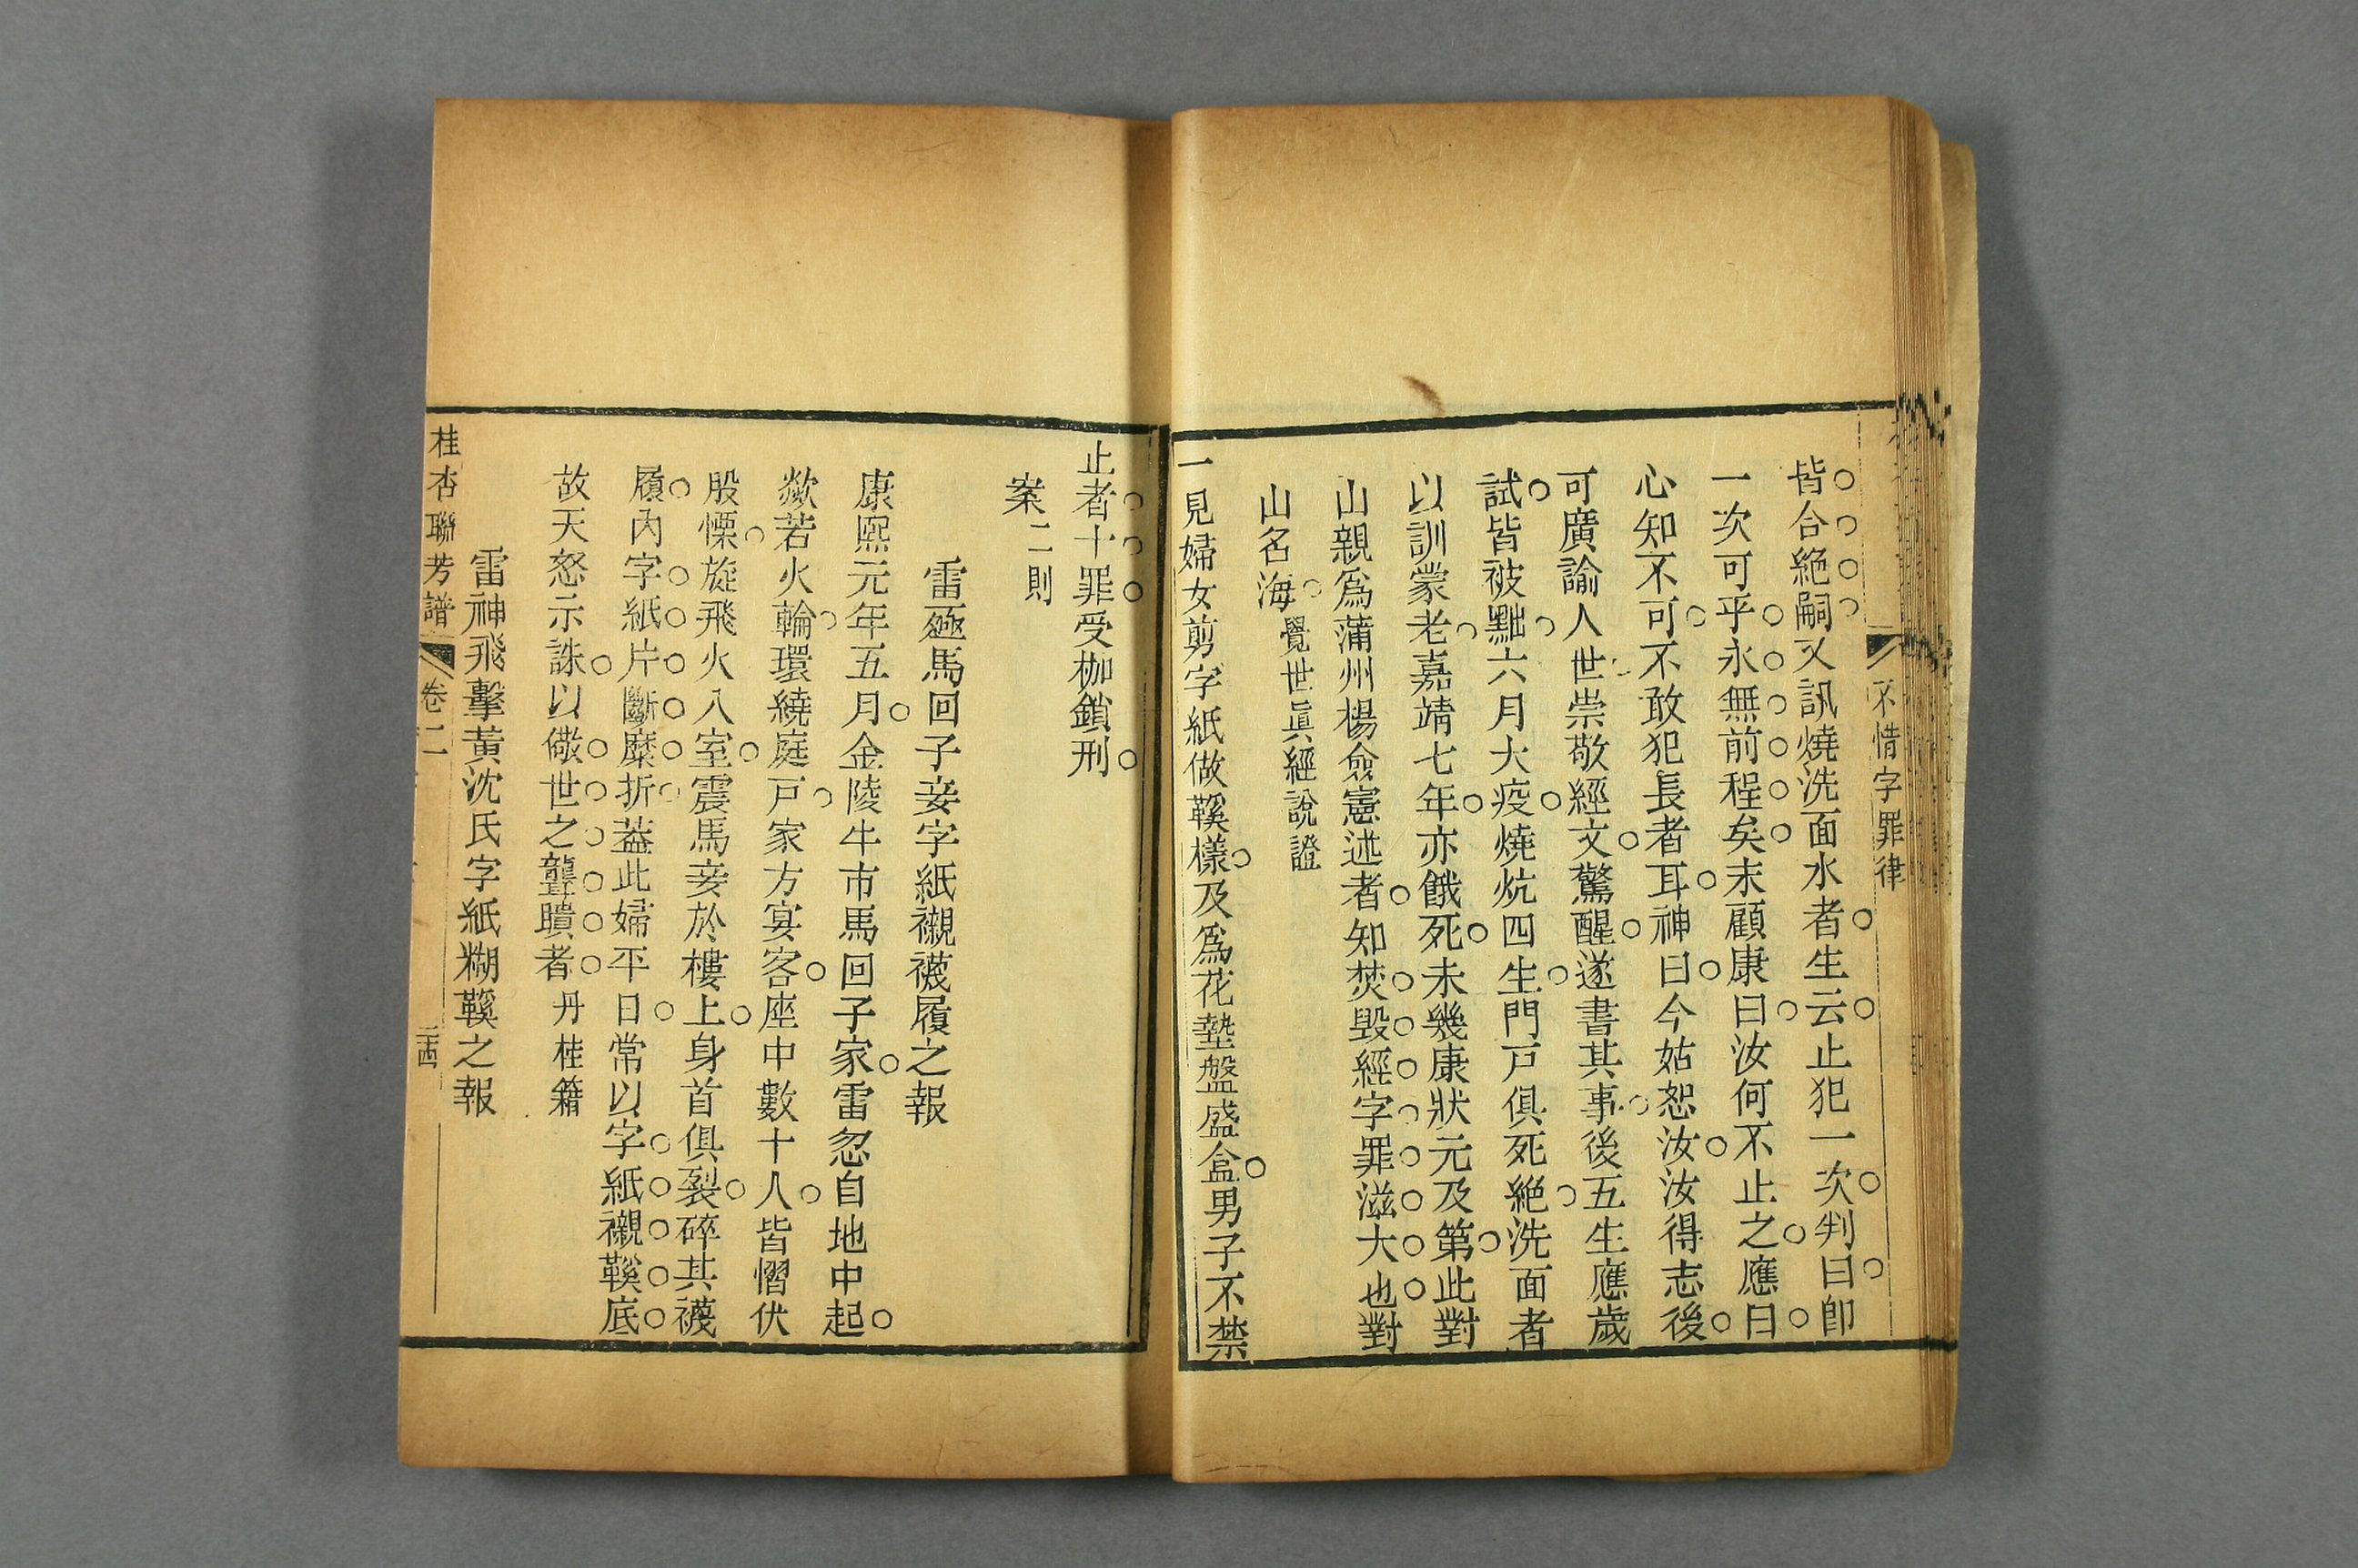 不惜字罪律
皆合絶嗣又訊燒洗面水者生云止犯一次判曰卽
一次可乎永無前程矣末顧康曰汝何不止之應曰
心知不可不敢犯長者耳神曰今姑恕汝汝得志後
可廣諭人世崇敬經文驚醒遂書其事後五生應歲
試皆被黜六月大疫燒炕四生門戸俱死絶洗面者
以訓蒙老嘉靖七年亦餓死未幾康狀元及第此對
山親爲蒲州楊僉憲述者知焚毁經字罪滋大也對
山名海覺世眞經說證
一見婦女剪字紙做鞵樣及爲花墊盤盛盒男子不禁
止者十罪受枷鎖刑
案二則
雷殛馬回子妾字紙襯襪履之報
康熙元年五月金陵牛市馬回子家雷忽自地中起
歘若火輪環繞庭戸家方宴客座中數十人皆慴伏
股慄旋飛火入室震馬妾於樓上身首俱裂碎其襪
履內字紙片斷糜折葢此婦平日常以字紙襯鞵底
故天怒示誅以儆世之聾瞶者丹桂籍
雷神飛擊黄沈氏字紙糊鞵之報
桂杏聯芳譜
卷二
二四